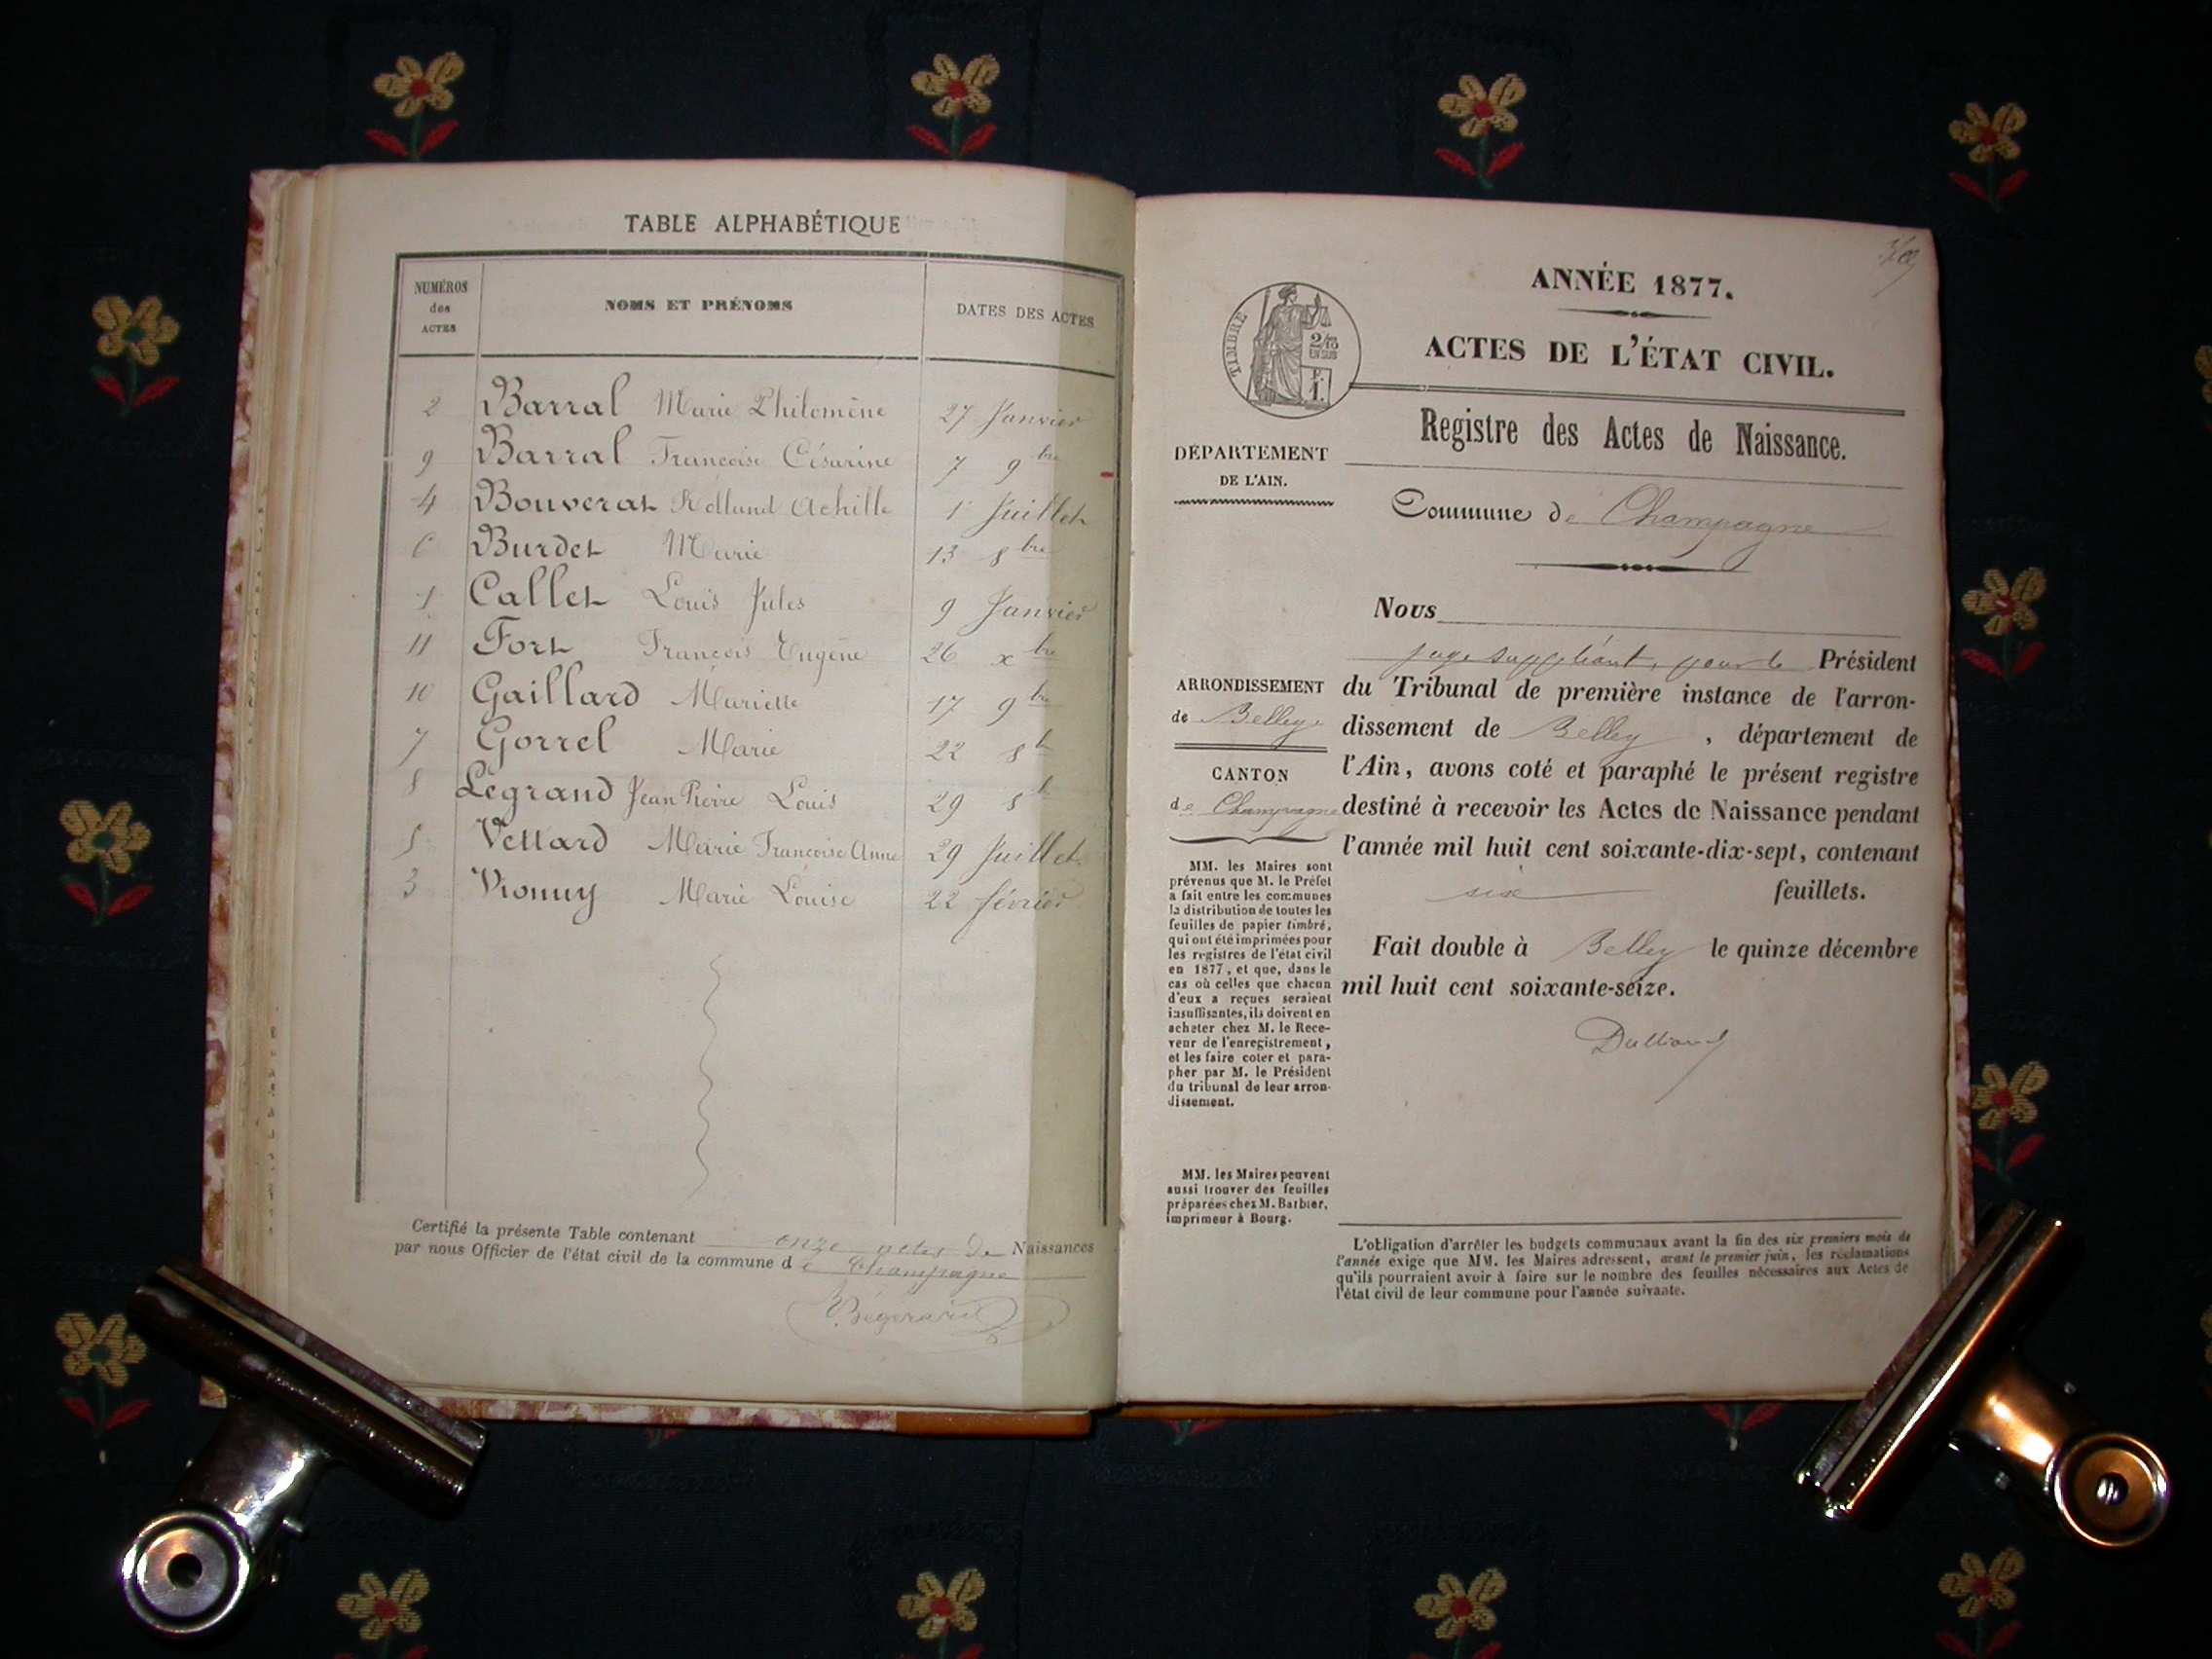 TABLE ALPHABÉTIQUE
NUMÉROS
des
ACTES
NOMS ET PRÉNOMS
DATES DES ACTES
2 Barral Marie Philomène 27 Janvier
9 Barral Françoise Césarine 7 9bre
4 Bouverat Achille 1 Juillet
6 Burdet Marie 13 8bre
1 Callet Louis Jules 9 Janvier
11 Fort François Eugène 26 xbre
10 Gaillard Mariette 17 9bre
7 Gorrel Marie 22 8b
8 Legrand Jean Pierre Louis 29 8b
5 Vettard Marie Françoise Anne 29 Juillet
3 Marie Louise 22 février
Certifié la présente Table contenant onze actes de Naissances
par nous Officier de l'état civil de la commune de Champagne
ANNÉE 1877.
ACTES DE L'ÉTAT CIVIL.
TIMBRE
2/10
EN SUS
F.
1.
Registre des Actes de Naissance.
DÉPARTEMENT
DE L'AIN.
Commune de Champagne
Nous
juge suppléant, pour le Président
du Tribunal de première instance de l'arron-
dissement de Belley, département de
l'Ain, avons coté et paraphé le présent registre
destiné à recevoir les Actes de Naissance pendant
l'année mil huit cent soixante-dix-sept, contenant
six feuillets.
Fait double à Belley le quinze décembre
mil huit cent soixante-seize.
ARRONDISSEMENT
de Belley
CANTON
de Champagne
MM. les Maires sont
prévenus que M. le Préfet
a fait entre les communes
la distribution de toutes les
feuilles de papier timbré,
qui ont été imprimées pour
les registres de l'état civil
en 1877, et que, dans le
cas où celles que chacun
d'eux a reçues seraient
insuffisantes, ils doivent en
acheter chez M. le Rece-
veur de l'enregistrement,
et les faire coter et para-
pher par M. le Président
du tribunal de leur arron-
dissement.
MM. les Maires peuvent
aussi trouver des feuilles
préparées chez M. Barbier,
imprimeur à Bourg.
L'obligation d'arrêter les budgets communaux avant la fin des six premiers mois de
l'année exige que MM. les Maires adressent, avant le premier juin, les réclamations
qu'ils pourraient avoir à faire sur le nombre des feuilles nécessaires aux Actes de
l'état civil de leur commune pour l'année suivante.